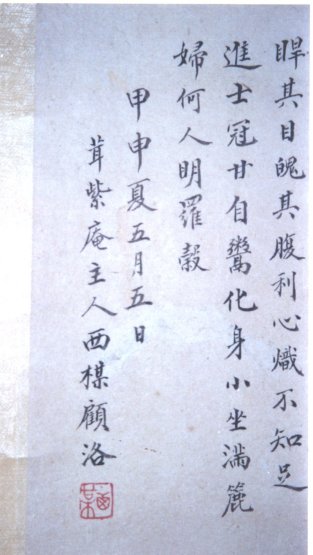 睅其目魄其腹利心熾不知足
進士冠甘自鬻化身小坐滿簏
婦何人明羅縠
甲申夏五月五日
茸紫庵主人西楳顧洛